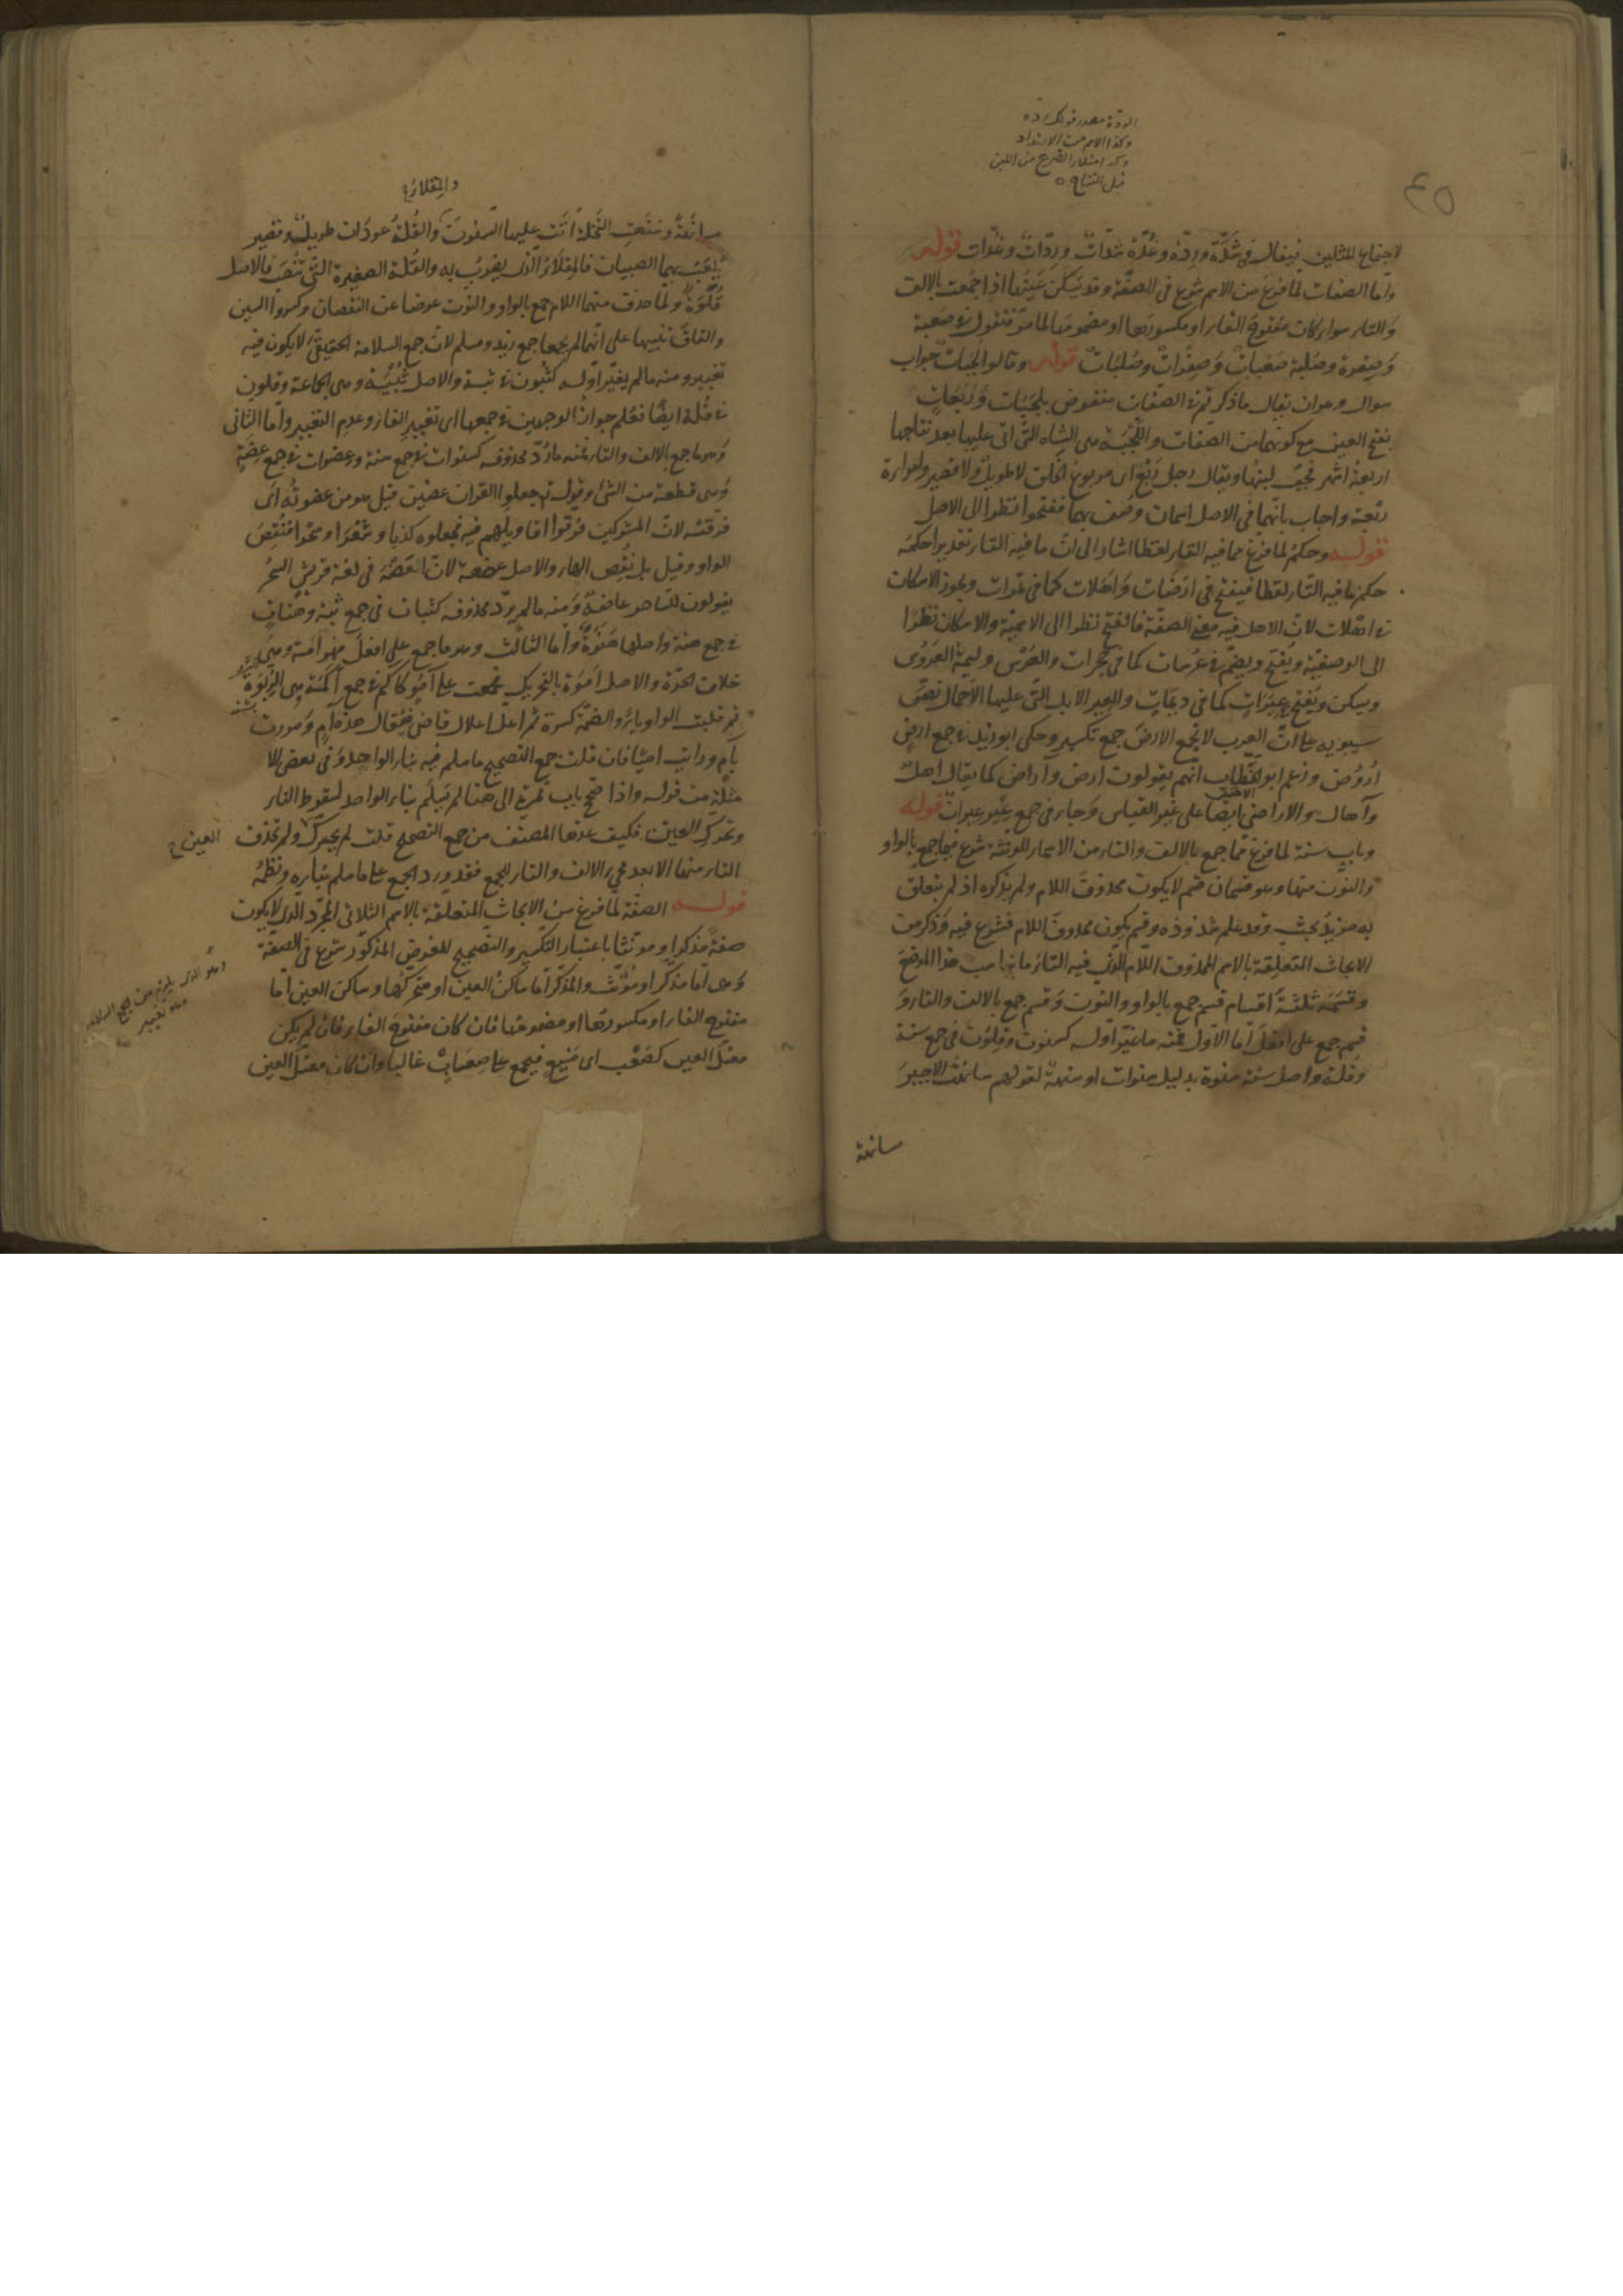 الردة مصدر قولك رده
وكذا الاسم من الارتداد
وكذا امتلاء الضرع من اللبن
قبل النتاج
٤٥
اجتماع المثلين فيقال في شدّة وردّة وغدّة شدّات وردّات وغدّات قوله
وأما الصفات لما فرغ من الاسم شرع في الصفة وقد يسكن عينها اذا جمعت بالالف
والتاء سواء كان مفتوح الفاء او مكسورها او مضمومها لما مرّ فتقول في صعبة
وصفرة وصلبة صعبات وصفرات وصلبات قوله وقالوا لجبات جواب
سوال وهو ان يقال ما ذكرتم في الصفات منقوض بلجبات وربعات
بفتح العين مع كونهما من الصفات واللجبة هي الشاة التي اتى عليها بعد نتاجها
اربعة اشهر فجف لبنها ويقال رجل ربع اى مربوع الخلق لا طويل ولا قصير وامراءة
ربعة واجاب بانهما في الاصل اسمان وصف بهما ففتحوا نظرا الى الاصل
قوله وحكم لما فرغ مما فيه التاء لفظا اشار الى ان ما فيه التاء تقديرا حكمه
حكم ما فيه التاء لفظا فيفتح في ارضات واهلات كما في تمرات ويجوز الاسكان
في اهلات لان الاهل فيه معنى الصفة فالفتح نظرا الى الاسمية والاسكان نظرا
الى الوصفية ويفتح ويضم في عرسات كما في حجرات والعرس وليمة العروس
ويسكن ويفتح عيرات كما في ديمات والعير الابل التي عليها الاحمال نصّ
سيبويه على ان العرب لا تجمع الارض جمع تكسير وحكى ابو زيد في جمع ارض
اروض وزعم ابو الخطاب انهم يقولون ارض وآراض كما يقال اهل
الاخفش
وآهال والاراضي ايضا على غير القياس وجاء في جمع عير عيرات قوله
وباب سنة لما فرغ مما جمع بالالف والتاء من الاسماء المونثة شرع فيما جمع بالواو
والنون منها وهو قسمان قسم لا يكون محذوف اللام ولم يذكره اذ لم يتعلق
به مزيد بحث وقد علم شذوذه وقسم يكون محذوف اللام فشرع فيه وذكر من
الابحاث المتعلقة بالاسم المحذوف اللام الذي فيه التاء ما يناسب هذا الموضع
وقسمه ثلثة اقسام قسم جمع بالواو والنون وقسم جمع بالالف والتاء و
قسم جمع على افعل اما الاول فمنه ما غيّر اوله كسنون وقلون في جمع سنة
وقلة واصل سنة سنوة بدليل سنوات او سنهة لقولهم سانهت الاجير
سانهة
والمقلاء
سانهة وسنهت النخلة اتت عليها السنون والقلة عودان طويل وقصير
يلعب بهما الصبيان فالمقلاء الذي يضرب به والقلة الصغيرة التي تنصب فالاصل
قلوة ولما حذف منهما اللام جمع بالواو والنون عوضا عن النقصان وكسروا السين
والقاف تنبيها على انهما لم يجمعا جمع زيد ومسلم لان جمع السلامة الحقيقي لا يكون فيه
تغيير ومنه ما لم يغيّر اوله كثبون في ثبة والاصل ثبية وهي الجماعة وقلون
في قلة ايضا فعلم جواز الوجهين في جمعها اى تغيير الفاء وعدم التغيير وأما الثاني
وهو ما جمع بالالف والتاء فمنه ما ردّ محذوفه كسنوات في جمع سنة وعضوات في جمع عضة
وهي قطعة من الشئ وقوله تع جعلوا القران عضين قيل هو من عضوته اى
فرقته لان المشركين فرقوا اقاويلهم فيه فجعلوه كذبا وشعرا وسحرا فنقص
الواو وقيل بل نقص الهاء والاصل عضهة لان العضه في لغة قريش السحر
يقولون للساحر عاضه ومنه ما لم يرد محذوفه كثبات في جمع ثبة وهنات
في جمع هنة واصلها هنوة وأما الثالث وهو ما جمع على افعل فهو امة وهي
خلاف الحرّة والاصل اموة بالتحريك فجمعت على آمو كاكم في جمع اكمة وهي الربوة
ثم قلبت الواو ياء والضمة كسرة ثم اعل اعلال قاض فيقال هذه آم ومررت
بآم ورايت اميا فان قلت جمع التصحيح ما سلم فيه بناء الواحد وفي بعض الا
مثلة من قوله واذا صحّ باب تمرة الى هنا لم يسلم بناء الواحد لسقوط التاء
وتحرك العين فكيف عدها المصنف من جمع التصحيح قلت لم يحرك ولم تحذف
العين ح
التاء منها الا بعد مجئ الالف والتاء للجمع فقد ورد الجمع على ما سلم بناءه ونظمه
قوله الصفة لما فرغ من الابحاث المتعلقة بالاسم الثلاثي المجرّد الذي لا يكون
صفة مذكرا ومونثا باعتبار التكسير والتصحيح للغرض المذكور شرع في الصفة
وهي اما مذكر او مونث والمذكر اما ساكن العين او متحركها وساكن العين اما
مفتوح الفاء او مكسورها او مضمومها فان كان مفتوح الفاء فان لم يكن
معتل العين كصعب اى منيع فيجمع على صعاب غالبا وان كان معتل العين